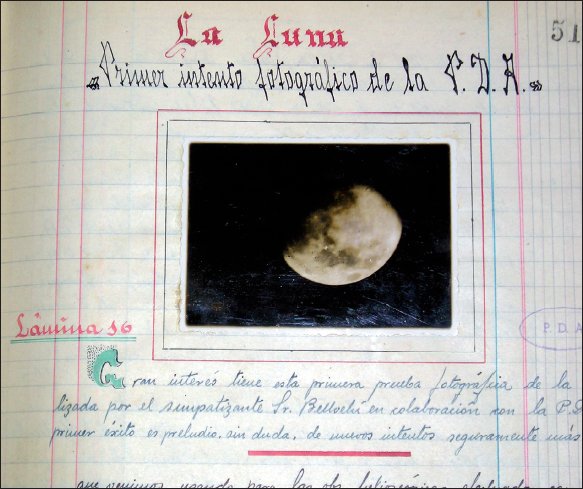 La Luna
51
«Primer intento fotográfico de la P.D.A.»
Lámina 16
P.D.A
Gran interés tiene esta primera prueba fotográfica de la
lizada por el simpatizante Sr. en colaboración con la P.D
primer éxito es preludio, sin duda, de nuevos intentos seguramente más
que venimos usando para las obs.